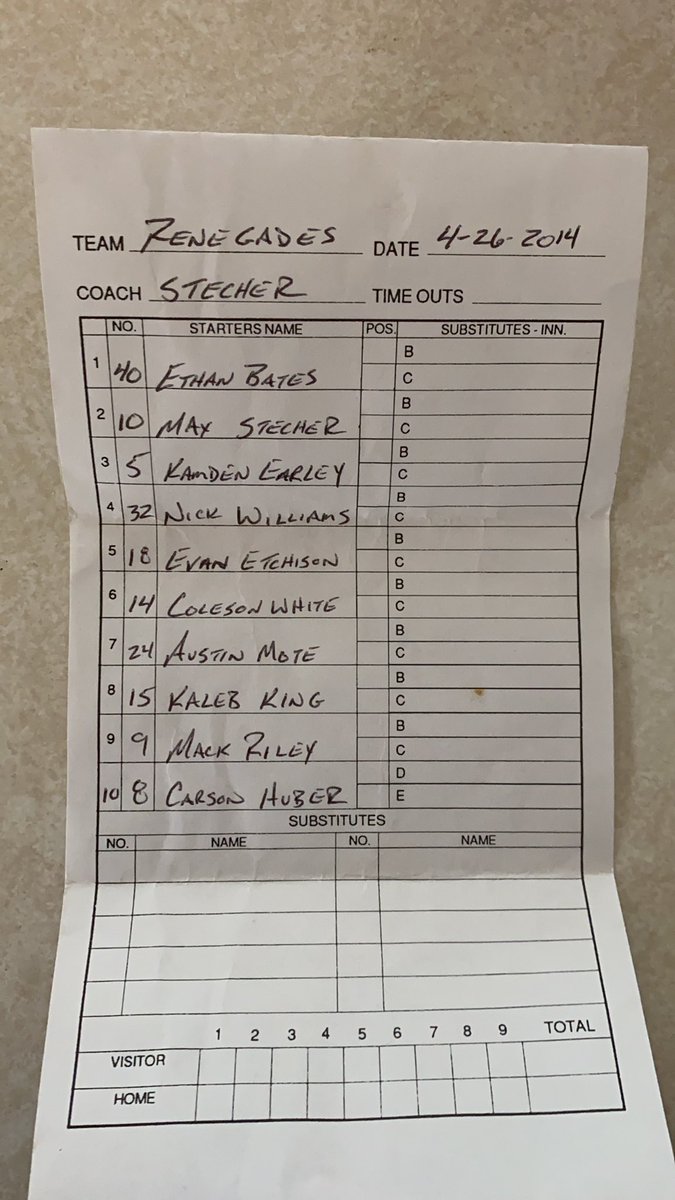 TEAM RENEGADES DATE 4-26-2014
COACH STECHER TIME OUTS
NO. STARTERS NAME POS. SUBSTITUTES - INN.
1 40 ETHAN BATES B
C
2 10 MAX STECHER B
C
3 5 KAMDEN EARLEY B
C
4 32 NICK WILLIAMS B
C
5 18 EVAN ETCHISON B
C
6 14 COLESON WHITE B
C
7 24 AUSTIN MOTE B
C
8 15 KALEB KING B
C
9 9 MACK RILEY B
C
D
10 8 CARSON HUBER E
SUBSTITUTES
NO. NAME NO. NAME
1 2 3 4 5 6 7 8 9 TOTAL
VISITOR
HOME